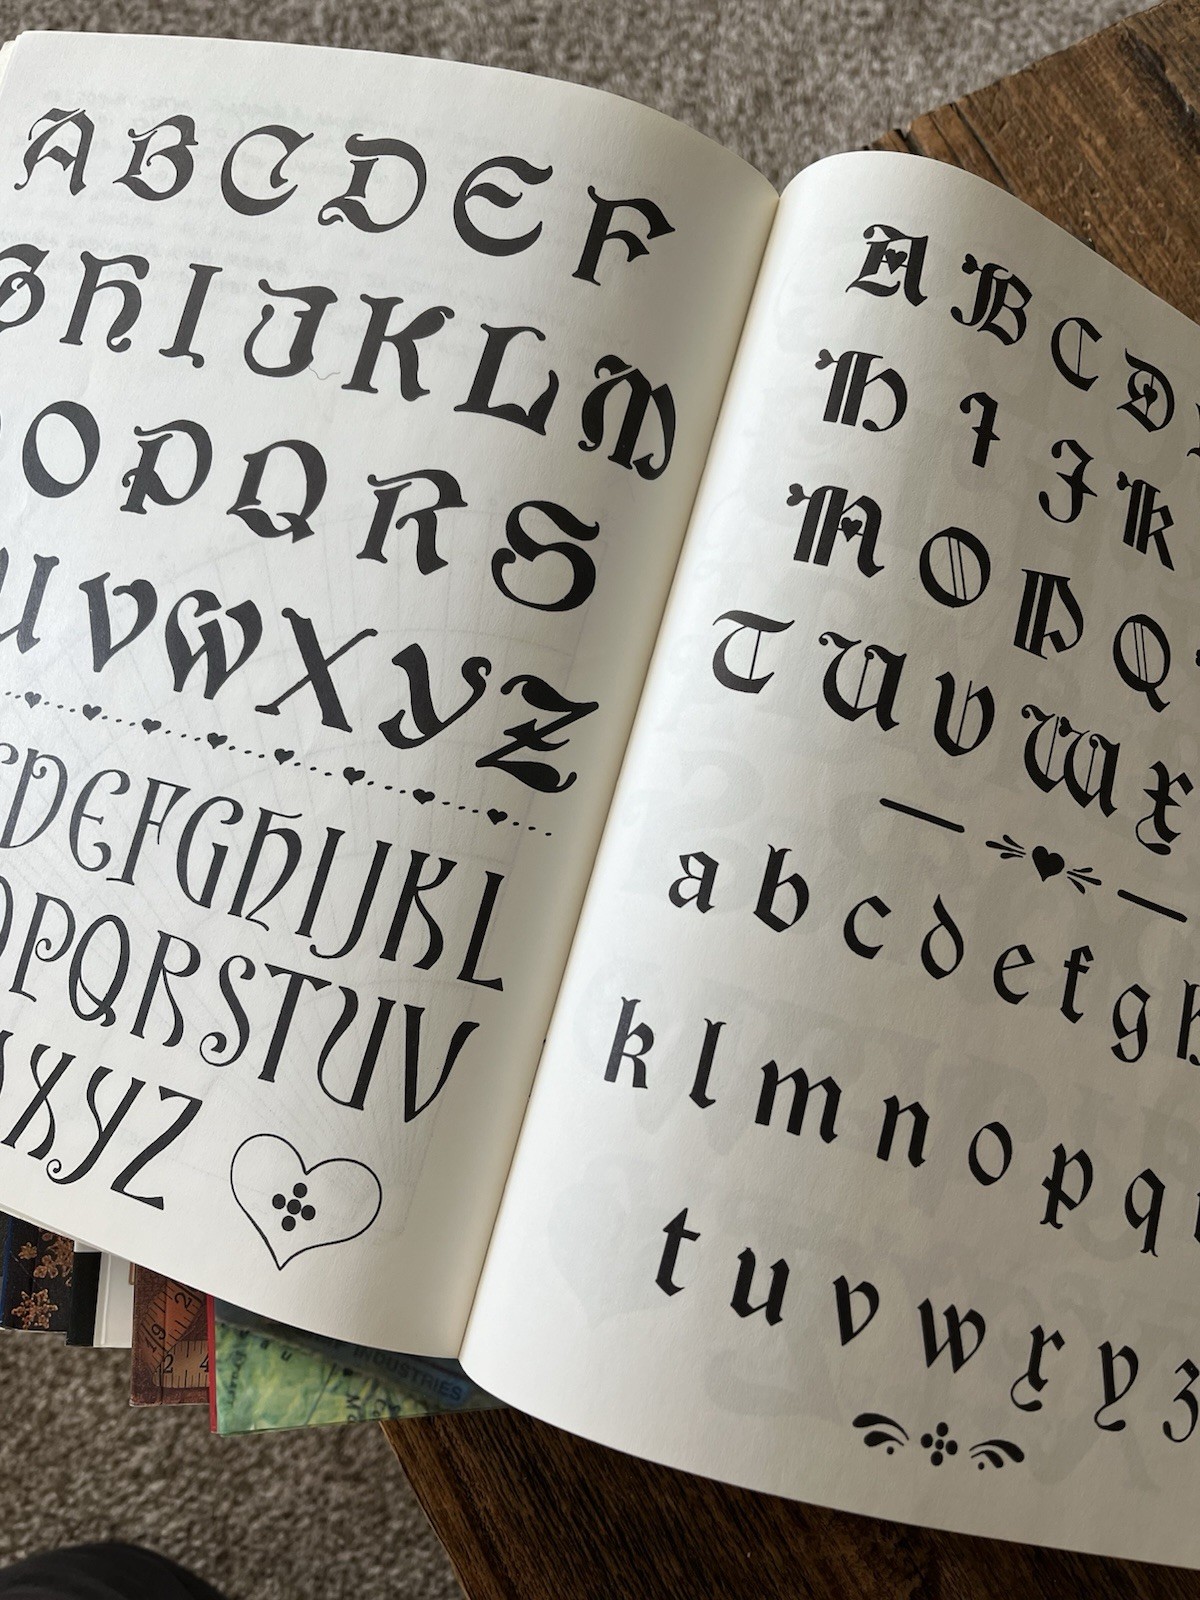 A B C D E F
G H I J K L M
O P Q R S
U V W X Y Z
C D E F G H I J K L
O P Q R S T U V
X Y Z
A B C D
H I J K
N O P Q
T U V W X
a b c d e f g h
k l m n o p q
t u v w x y z
19 2
2 4
INDUSTRIES